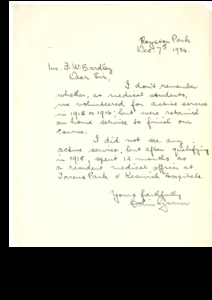 Royston Park
Dec. 7th 1934.
Mr F. W. Eardley
Dear Sir,
I don't remember
whether, as medical students,
we volunteered for active service
in 1915 or 1916; but were retained
on home service to finish our
course.
I did not see any
active service, but after qualifying
in 1918, spent 12 months as
a resident medical officer at
Torrens Park & Keswick Hospitals.
Yours faithfully